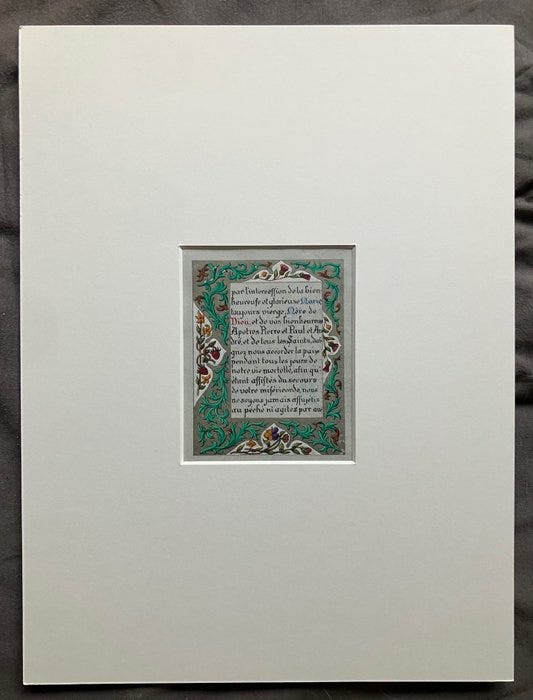 par l'intercession de la bien
heureuse et glorieuse Marie
toujours vierge, Mère de
Dieu, et de vos bienheureux
Apotres Pierre et Paul et An
dré, et de tous les Saints, dai
gnez nous accorder la paix
pendant tous les jours de
notre vie mortelle, afin qu'
étant assistés du secours
de votre miséricorde, nous
ne soyons jamais assujetis
au péché ni agités par au